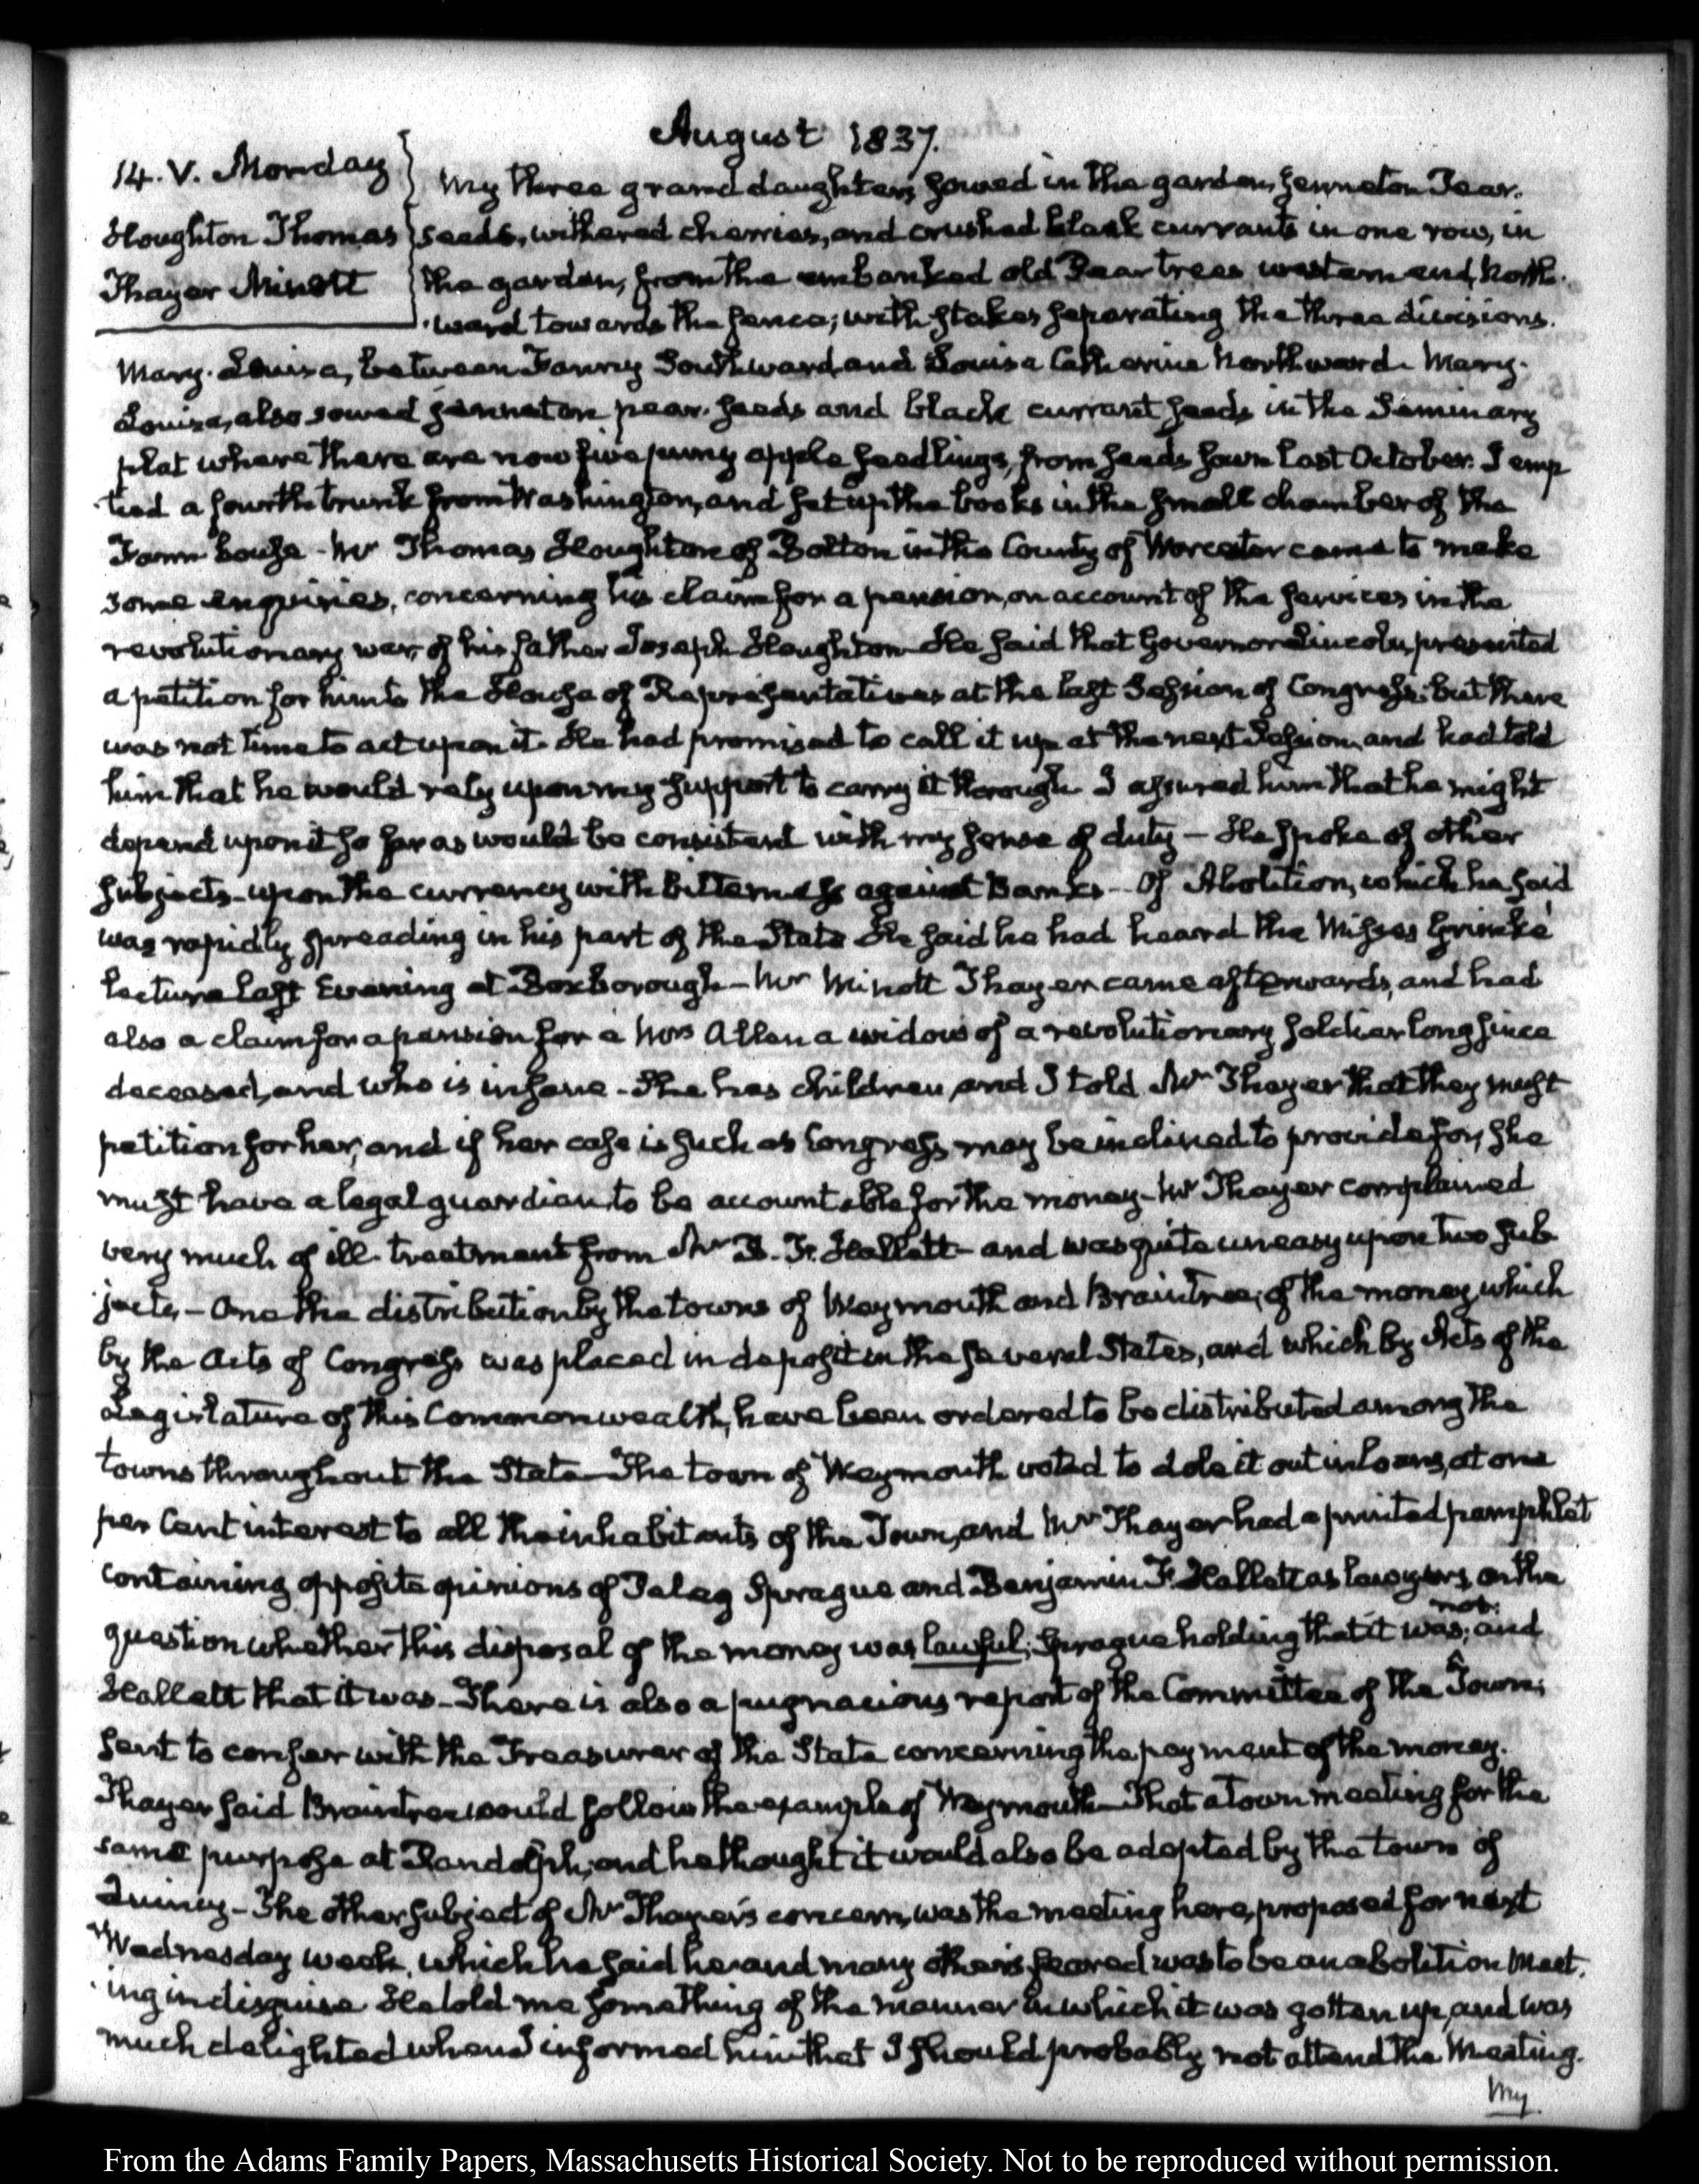 August 1837.
14. V. Monday
Houghton Thomas
Thayer Minott
My three granddaughters sowed in the garden, Jenneton Pear.
seeds, withered cherries, and crushed black currants in one row, in
the garden, from the embanked old Pear trees western end, North.
ward towards the fence; with stakes separating the three divisions.
Mary-Louisa, between Fanny Southward and Louisa Catherine Northward. Mary-
Louisa, also sowed Jenneton pear-seeds and black currant seeds in the Seminary
plat where there are now five puny apple seedlings, from seeds sown last October. I emp
tied a fourth trunk from Washington, and set up the books in the small chamber of the
Farm house - Mr Thomas Houghton of Bolton in the County of Worcester came to make
some enquiries, concerning his claim for a pension, on account of the services in the
revolutionary war, of his father Joseph Houghton. He said that Governor Lincoln, presented
a petition for him to the House of Representatives at the last Session of Congress: but there
was not time to act upon it. He had promised to call it up at the next Session, and had told
him that he would rely upon my support to carry it through. I assured him that he might
depend upon it so far as would be consistent with my sense of duty - He spoke of other
subjects - upon the currency with bitterness against Banks - Of Abolition, which he said
was rapidly spreading in his part of the State. He said he had heard the Misses Grimké
lecture last Evening at Boxborough - Mr Minott Thayer came afterwards, and had
also a claim for a pension for a Mrs Allen a widow of a revolutionary soldier long since
deceased, and who is insane - She has children, and I told Mr Thayer that they must
petition for her, and if her case is such as Congress may be inclined to provide for, she
must have a legal guardian to be accountable for the money - Mr Thayer complained
very much of ill-treatment from Mr B. F. Hallett - and was quite uneasy upon two sub
jects - One the distribution by the towns of Weymouth and Braintree, of the money which
by the Acts of Congress was placed in deposit in the several States, and which by Acts of the
Legislature of this Commonwealth, have been ordered to be distributed among the
towns throughout the State - The town of Weymouth voted to dole it out in loans, at one
per Cent interest to all the inhabitants of the Town, and Mr Thayer had a printed pamphlet
containing opposite opinions of Peleg Sprague and Benjamin F. Hallett as lawyers on the
question whether this disposal of the money was lawful; Sprague holding that it was not; and
Hallett that it was - There is also a pugnacious report of the Committee of the Town;
sent to confer with the Treasurer of the State concerning the payment of the money.
Thayer said Braintree would follow the example of Weymouth - That a town meeting for the
same purpose at Randolph, and he thought it would also be adopted by the town of
Quincy - The other subject of Mr Thayer's concern, was the meeting here, proposed for next
Wednesday week, which he said he and many others feared was to be an abolition Meet.
ing in disguise. He told me something of the manner in which it was gotten up, and was
much delighted when I informed him that I should probably not attend the Meeting.
My
From the Adams Family Papers, Massachusetts Historical Society. Not to be reproduced without permission.